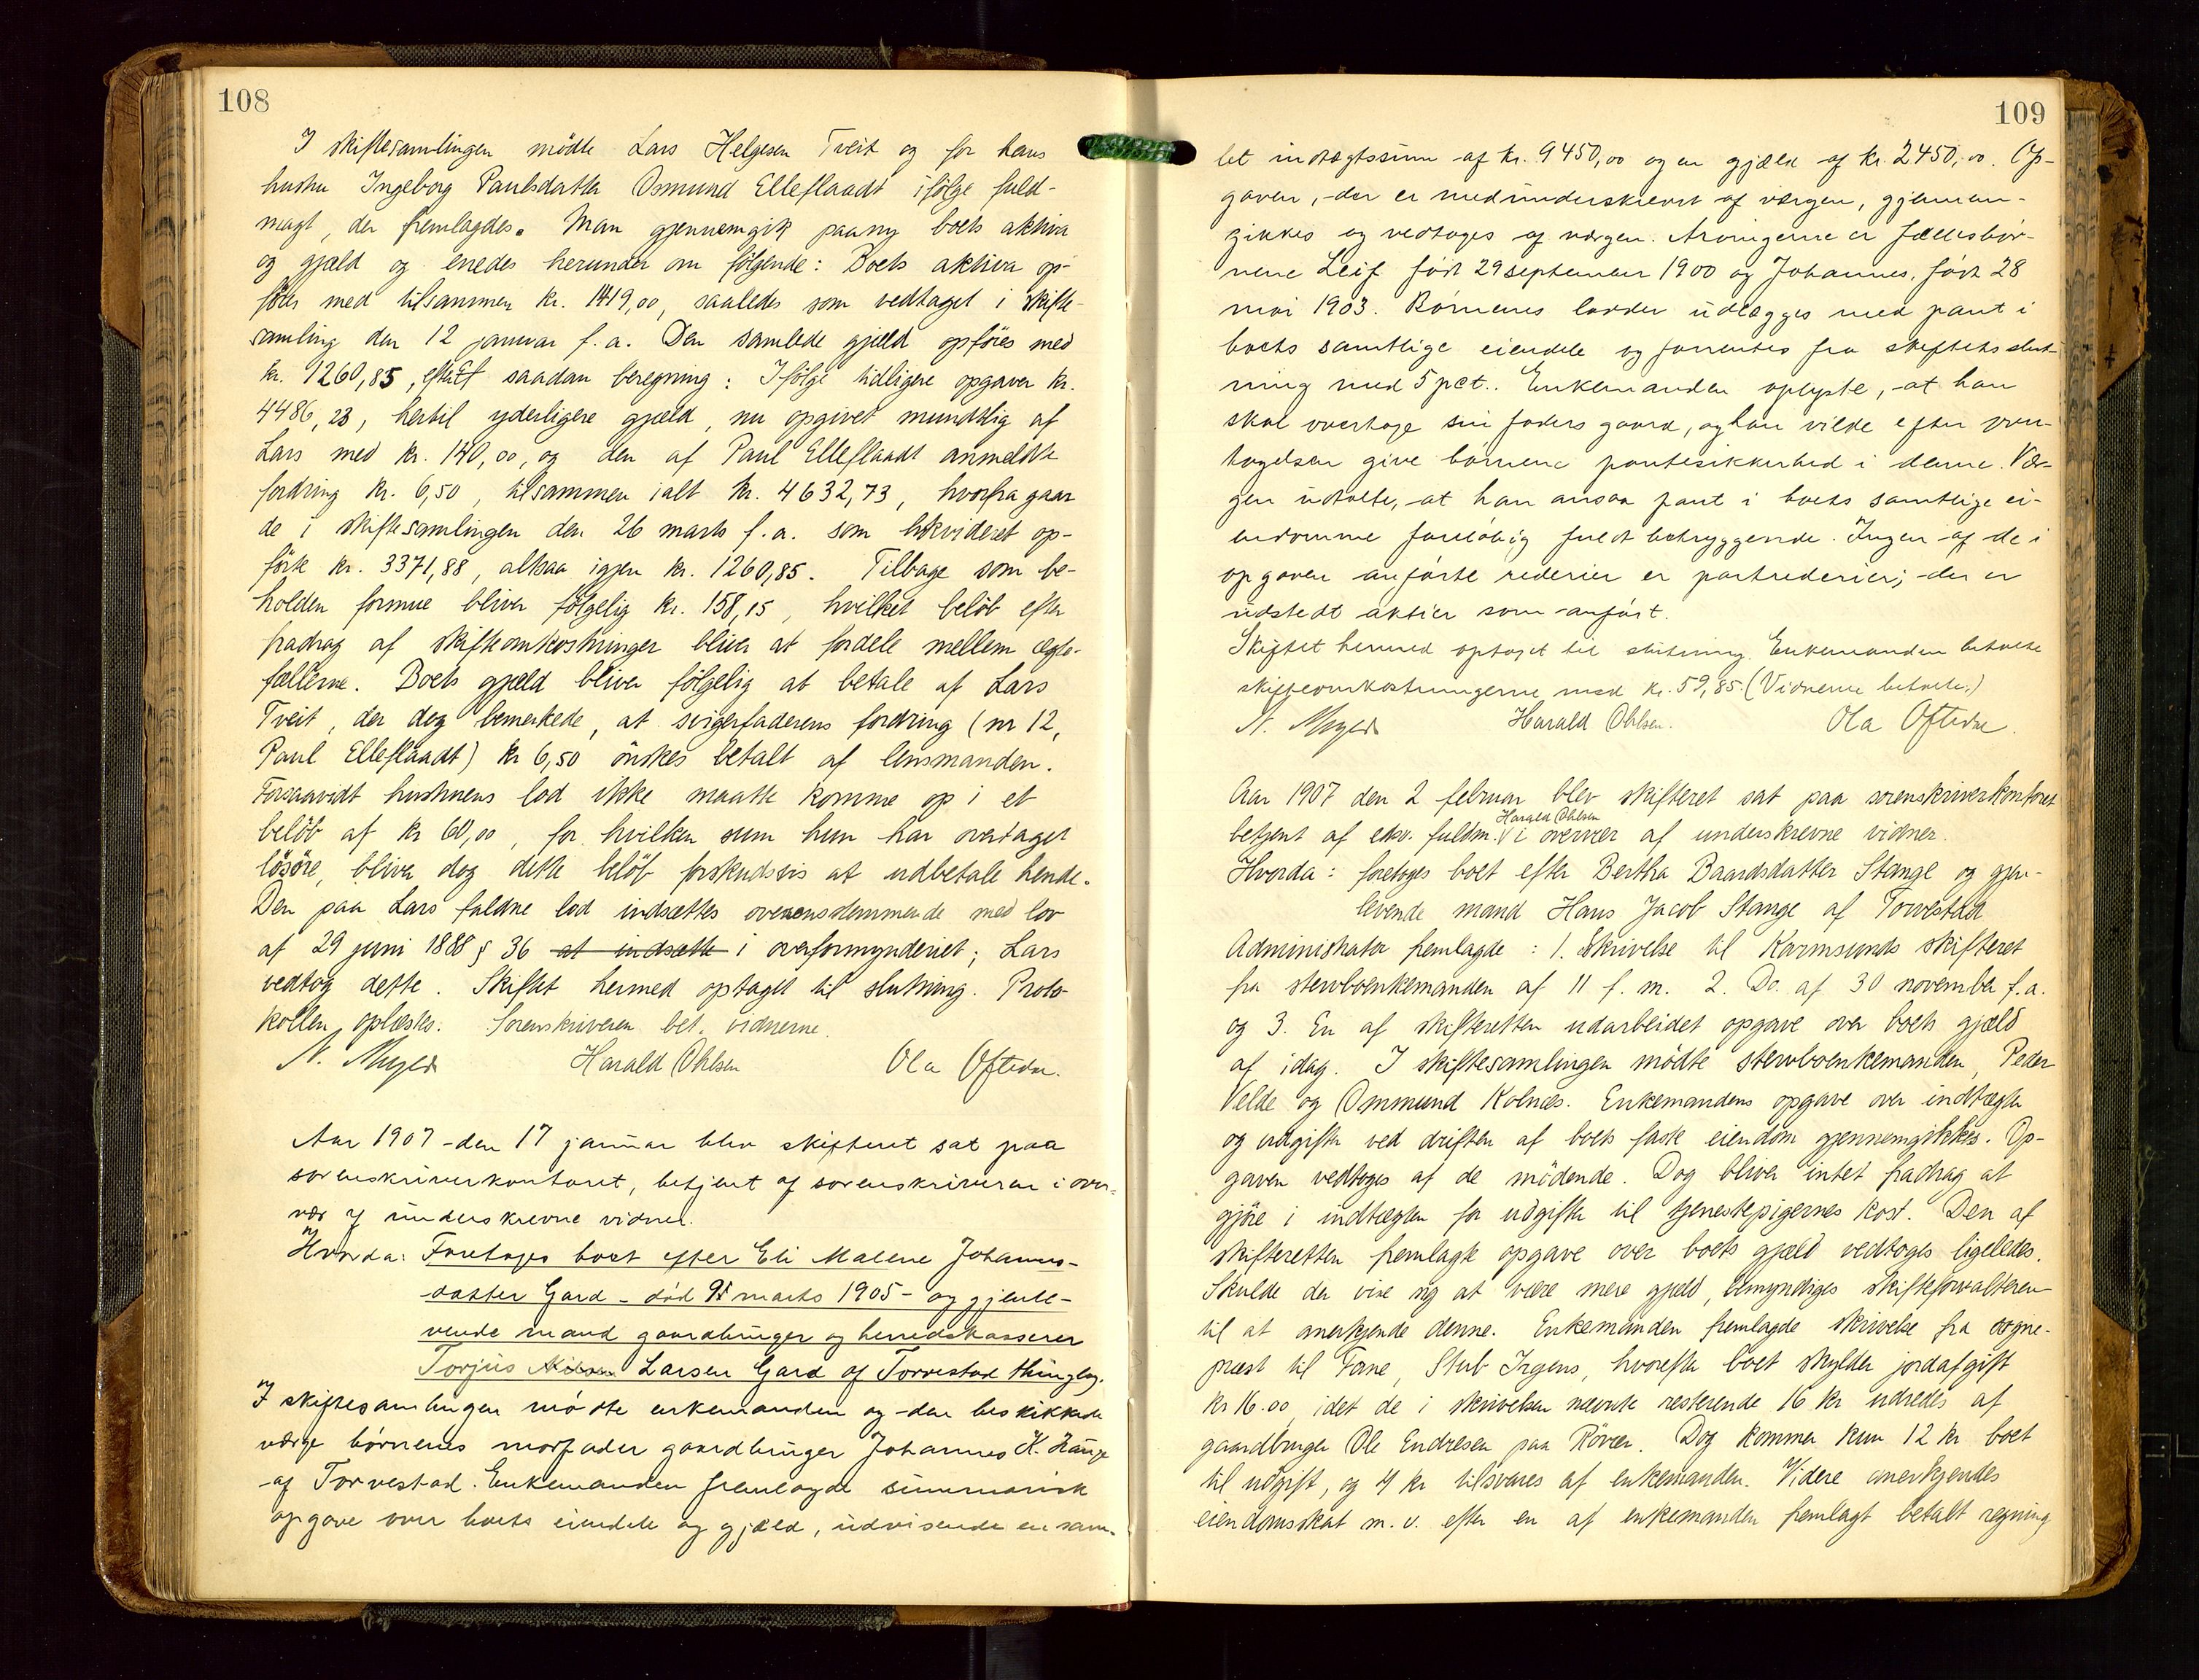 108
I skiftesamlingen mödte Lars Helgesen Tveit og for hans
hustru Ingeborg Paulsdatter Osmund Elleflaadt ifölge fuld-
magt, der fremlagdes. Man gjennemgik paany boets aktiva
og gjæld og enedes herunder om fölgende: Boets aktiva op-
föres med tilsammen kr. 1419,00, saaledes som vedtaget i skifte-
samling den 12 januar f. a. Den samlede gjæld opföres med
kr. 1260,85, efter saadan beregning: Ifölge tidligere opgaver kr.
4486,23, hertil yderligere gjæld, nu opgivet mundtlig af
Lars med kr. 140,00, og den af Paul Elleflaadt anmeldte
fordring kr. 6,50, tilsammen ialt kr. 4632,73, hvorfra gaar
de i skiftesamlingen den 26 marts f. a. som likvideret op-
förte kr. 3371,88, altsaa igjen kr. 1260,85. Tilbage som be-
holden formue bliver fölgelig kr. 158,15, hvilket belöb efter
fradrag af skifteomkostninger bliver at fordele mellem ægte-
fællerne. Boets gjæld bliver fölgelig at betale af Lars
Tveit, der dog bemerkede, at svigerfaderens fordring (nr 12,
Paul Elleflaadt) kr 6,50 önskes betalt af lensmanden.
Forsaavidt hustruens lod ikke maatte komme op i et
belöb af kr 60,00, for hvilken sum hun har overtaget
lösöre, bliver dog dette belöb forskudsvis at udbetale hende.
Den paa Lars faldne lod indsættes overensstemmende med lov
af 29 juni 1888 § 36 at indsætte i overformynderiet; Lars
vedtog dette. Skiftet hermed optaget til slutning. Proto-
kollen oplæstes. Sorenskriveren bet. vidnerne.
N. Meyer Harald Ohlsen Ola Oftedne.
Aar 1907 den 17 januar blev skifteret sat paa
sorenskriverkontoret, betjent af sorenskriveren i over-
vær af underskrevne vidner.
Hvorda: Foretoges boet efter Eli Malene Johannes-
datter Gard - död marts 1905 - og gjenle-
vende mand gaardbruger og herredskasserer
Torjus Larsen Gard af Torvestad thinglag.
I skiftesamlingen mödte enkemanden og den beskikkede
værge börnenes morfader gaardbruger Johannes K. Hauge
af Torvestad. Enkemanden fremlagde summarisk
opgave over boets eiendele og gjæld, udvisende en sam-
109
let indtægtssum af kr. 9450,00 og en gjæld af kr. 2450,00. Op-
gaven, der er medunderskrevet af værgen, gjennem-
gikkes og vedtoges af værgen. Arvingerne er fællesbör-
nene Leif född 29 september 1900 og Johannes, född 28
mai 1903. Börnenes lodder udlægges med pant i
boets samtlige eiendele og forrentes fra skiftets slut-
ning med 5 pct. Enkemanden oplyste, at han
skal overtage sin faders gaard, og han vilde efter over-
tagelsen give börnene pantesikkerhed i denne. Vær-
gen udtalte, at han ansaa pant i boets samtlige ei-
endomme forelöbig fuldt betryggende. Ingen af de i
opgaven anförte rederier er partrederier; der er
udstedt aktier som anfört.
Skiftet hermed optaget til slutning. Enkemanden betalte
skifteomkostningerne med kr. 59,85. (Vidnerne betalte.)
N. Meyer Harald Ohlsen. Ola Oftedne.
Aar 1907 den 2 februar blev skifteret sat paa sorenskriverkontoret
Harald Ohlsen
betjent af edsv. fuldm. V i overvær af underskrevne vidner.
Hvorda: foretoges boet efter Bertha Baardsdatter Stange og gjen-
levende mand Hans Jacob Stange af Torvestad
Administrator fremlagde: 1. Skrivelse til Karmsunds skifteret
fra stervboenkemanden af 11 f. m. 2. Do. af 30 november f.a.
og 3. En af skifteretten udarbeidet opgave over boets gjæld
af idag. I skiftesamlingen mödte stervboenkemanden, Peder
Velde og Ommund Kolnæs. Enkemandens opgave over indtægter
og udgifter ved driften af boets faste eiendom gjennemgikkes. Op-
gaven vedtoges af de mödende. Dog bliver intet fradrag at
gjöre i indtægten for udgifter til tjenestepigernes kost. Den af
skifteretten fremlagte opgave over boets gjæld vedtoges ligeledes.
Skulde der vise sig at være mere gjæld, bemyndiges skifteforvalteren
til at anerkjende denne. Enkemanden fremlagde skrivelse fra sogne-
præst til Fane, Stub Irgens, hvorefter boet skylder jordafgift
kr 16.00, idet de i skrivelsen nævnte resterende 16 kr udredes af
gaardbruger Ole Endresen paa Rövær. Dog kommer kun 12 kr boet
til udgift, og 4 kr tilsvares af enkemanden. Videre anerkjendes
eiendomsskat m. v. efter en af enkemanden fremlagt betalt regning